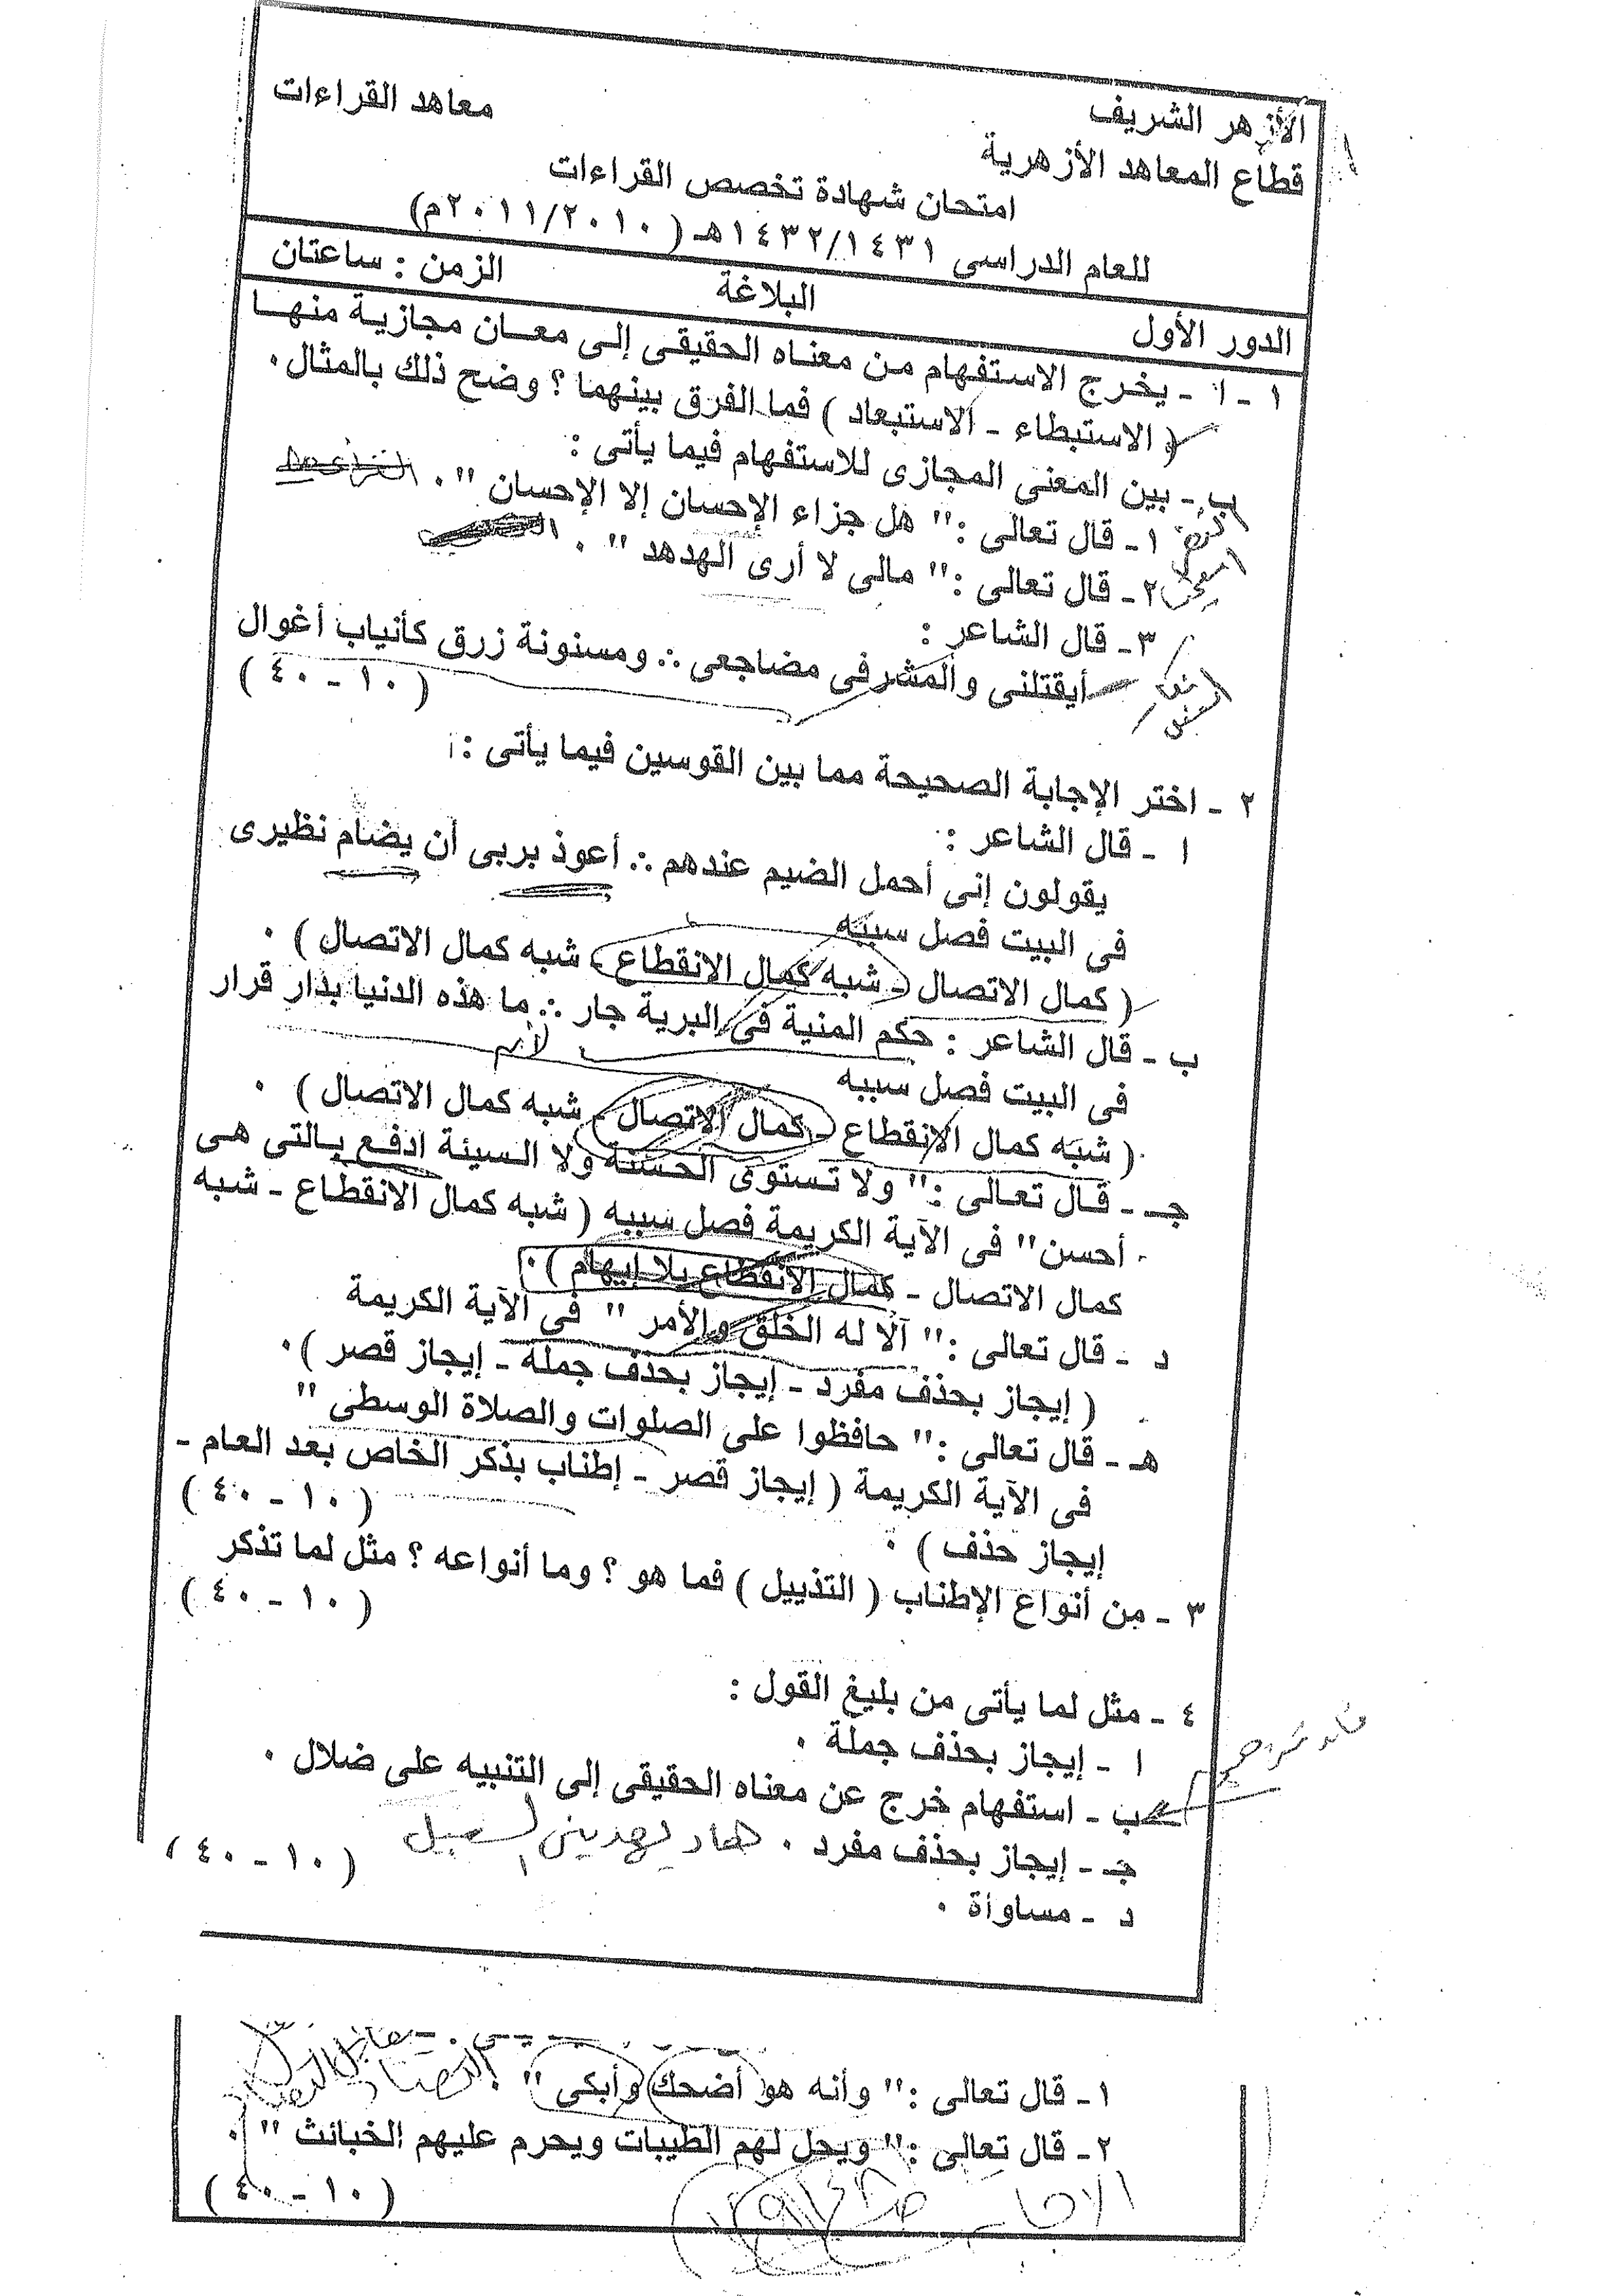 الأزهر الشريف
معاهد القراءات
قطاع المعاهد الأزهرية
امتحان شهادة تخصص القراءات
للعام الدراسى ١٤٣٢/١٤٣١هـ ( ٢٠١١/٢٠١٠م)
الدور الأول البلاغة الزمن : ساعتان
١ - ا - يخرج الاستفهام من معناه الحقيقى إلى معان مجازية منها
( الاستبطاء - الاستبعاد ) فما الفرق بينهما ؟ وضح ذلك بالمثال .
ب - بين المعنى المجازى للاستفهام فيما يأتى :
١ - قال تعالى :" هل جزاء الإحسان إلا الإحسان " .
٢ - قال تعالى :" مالى لا أرى الهدهد " .
٣ - قال الشاعر :
أيقتلنى والمشرفى مضاجعى .:. ومسنونة زرق كأنياب أغوال
( ١٠ - ٤٠ )
٢ - اختر الإجابة الصحيحة مما بين القوسين فيما يأتى :
ا - قال الشاعر :
يقولون إنى أحمل الضيم عندهم .:. أعوذ بربى أن يضام نظيرى
فى البيت فصل سببه
( كمال الاتصال - شبه كمال الانقطاع - شبه كمال الاتصال ) .
ب - قال الشاعر : حكم المنية فى البرية جار .:. ما هذه الدنيا بدار قرار
فى البيت فصل سببه
( شبه كمال الانقطاع - كمال الاتصال - شبه كمال الاتصال ) .
جـ - قال تعالى :" ولا تستوى الحسنة ولا السيئة ادفع بالتى هى
أحسن" فى الآية الكريمة فصل سببه ( شبه كمال الانقطاع - شبه
كمال الاتصال - كمال الانقطاع بلا إيهام ) .
د - قال تعالى :" ألا له الخلق والأمر " فى الآية الكريمة
( إيجاز بحذف مفرد - إيجاز بحذف جملة - إيجاز قصر ) .
هـ - قال تعالى :" حافظوا على الصلوات والصلاة الوسطى "
فى الآية الكريمة ( إيجاز قصر - إطناب بذكر الخاص بعد العام -
إيجاز حذف ) .
( ١٠ - ٤٠ )
٣ - من أنواع الإطناب ( التذييل ) فما هو ؟ وما أنواعه ؟ مثل لما تذكر
( ١٠ - ٤٠ )
٤ - مثل لما يأتى من بليغ القول :
ا - إيجاز بحذف جملة .
ب - استفهام خرج عن معناه الحقيقى إلى التنبيه على ضلال .
جـ - إيجاز بحذف مفرد .
د - مساواة .
( ١٠ - ٤٠ )
١ - قال تعالى :" وأنه هو أضحك وأبكى " .
٢ - قال تعالى :" ويحل لهم الطيبات ويحرم عليهم الخبائث " .
( ١٠ - ٤٠ )